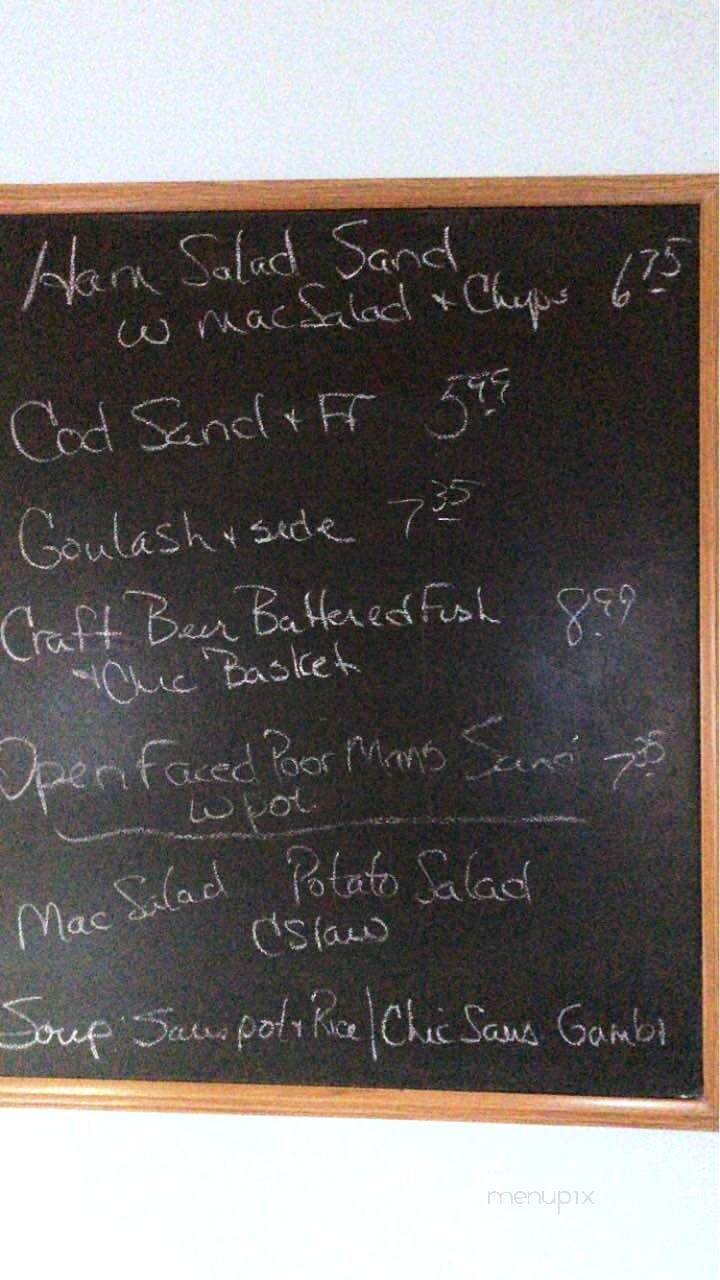 Ham Salad Sand
w mac Salad + Chips 6 75
Cod Sand + FF 5 99
Goulash + side 7 35
Craft Beer Battered Fish 8 99
+ Chic Basket
Open Faced Poor Mans Sand 7 35
w pot
Mac Salad Potato Salad
CSlaw
Soup: Saus pot + Rice / Chic Saus Gambi
menupix